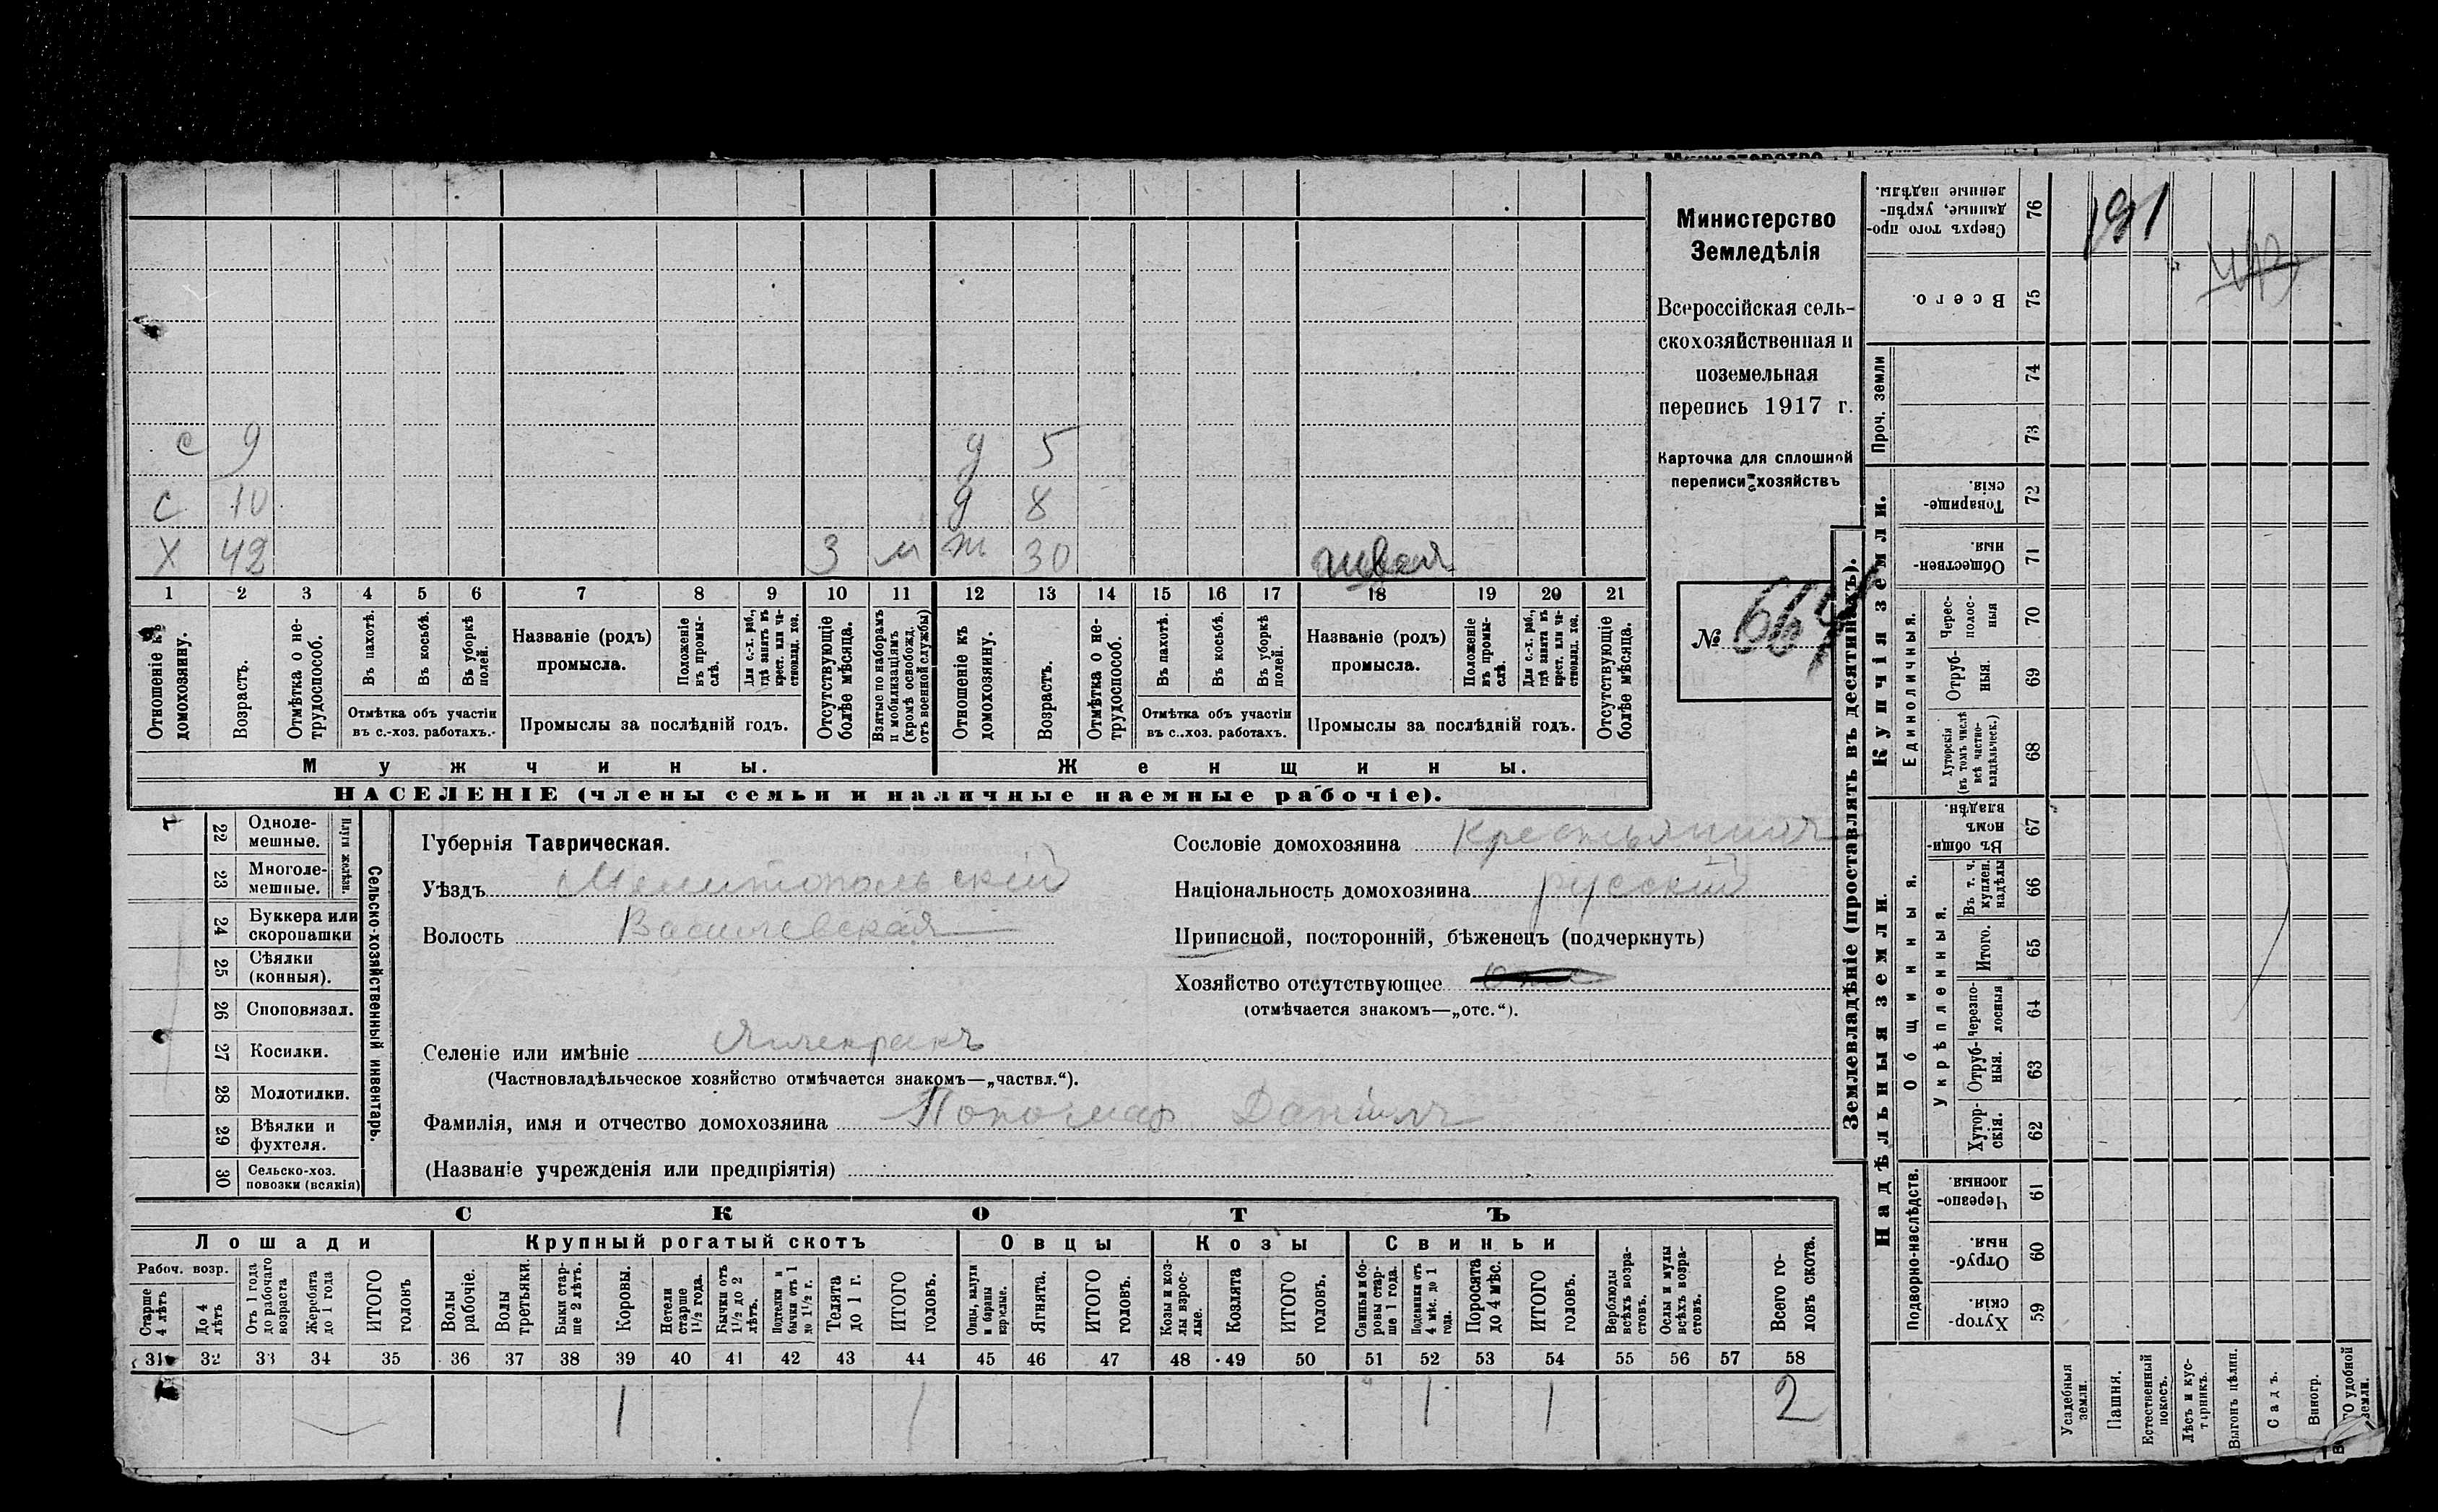 Министерство
Земледѣлія
Всероссійская сель-
скохозяйственная и
поземельная
перепись 1917 г.
Карточка для сплошной
переписи хозяйствъ
№ 664
с 9 д 5
с 10 д 8
х 42 3 м ж 30 швея
1 2 3 4 5 6 7 8 9 10 11 12 13 14 15 16 17 18 19 20 21
Отношеніе къ домохозяину.
Возрастъ.
Отмѣтка о не-трудоспособ.
Въ пахотѣ.
Въ косьбѣ.
Въ уборкѣ полей.
Отмѣтка объ участіи
въ с.-хоз. работахъ.
Названіе (родъ)
промысла.
Положеніе въ промы-слѣ.
Для с.-х. раб., гдѣ занятъ въ крест. или ча-стновлад. хоз.
Промыслы за послѣдній годъ.
Отсутствующіе болѣе мѣсяца.
Взятые по наборамъ и мобилизаціямъ (кромѣ освобожд. отъ военной службы)
Отношеніе къ домохозяину.
Возрастъ.
Отмѣтка о не-трудоспособ.
Въ пахотѣ.
Въ косьбѣ.
Въ уборкѣ полей.
Отмѣтка объ участіи
въ с..хоз. работахъ.
Названіе (родъ)
промысла.
Положеніе въ промы-слѣ.
Для с.-х. раб., гдѣ занята въ крест. или ча-стновлад. хоз.
Промыслы за послѣдній годъ.
Отсутствующіе болѣе мѣсяца.
Мужчины. Женщины.
НАСЕЛЕНІЕ (члены семьи и наличные наемные рабочіе).
22 Однолемешные.
23 Многолемешные.
Плуги желѣзн.
24 Буккера или скоропашки
25 Сѣялки (конныя).
26 Споповязал.
27 Косилки.
28 Молотилки.
29 Вѣялки и фухтеля.
30 Сельско-хоз. повозки (всякія)
Сельско-хозяйственный инвентарь.
Губернія Таврическая.
Уѣздъ Мелитопольскій
Волость Васильевская
Сословіе домохозяина Крестьянинъ
Національность домохозяина русскій
Приписной, посторонній, бѣженецъ (подчеркнуть)
Хозяйство отсутствующее
(отмѣчается знакомъ—„отс.“).
Селеніе или имѣніе Янчекракъ
(Частновладѣльческое хозяйство отмѣчается знакомъ—„частвл.“).
Фамилія, имя и отчество домохозяина Пономар Даніилъ
(Названіе учрежденія или предпріятія)
СКОТЪ
Лошади Крупный рогатый скотъ Овцы Козы Свиньи
Рабоч. возр.
Старше 4 лѣтъ
До 4 лѣтъ
Отъ 1 года до рабочаго возраста
Жеребята до 1 года
ИТОГО головъ
Волы рабочіе.
Волы третьяки.
Быки стар-ше 2 лѣтъ.
Коровы.
Нетели старше 1 1/2 года.
Бычки отъ 1 1/2 до 2 лѣтъ.
Подтелки и бычки отъ 1 до 1 1/2 г.
Телята до 1 г.
ИТОГО головъ.
Овцы, валухи и бараны взрослые.
Ягнята.
ИТОГО головъ.
Козы и коз-лы взрос-лые.
Козлята
ИТОГО головъ.
Свиньи и бо-ровы стар-ше 1 года.
Подсвинки отъ 4 мѣс. до 1 года.
Поросята до 4 мѣс.
ИТОГО головъ.
Верблюды всѣхъ возра-стовъ.
Ослы и мулы всѣхъ возра-стовъ.
Всего го-ловъ скота.
31 32 33 34 35 36 37 38 39 40 41 42 43 44 45 46 47 48 49 50 51 52 53 54 55 56 57 58
1 1 1 1 2
Землевладѣніе (проставлять въ десятинахъ).
Купчія земли.
Надѣльныя земли.
Проч. земли
Единоличныя.
Общинныя.
Укрѣпленныя.
Подворно-наслѣдств.
Сверхъ того про-данные, укрѣп-ленные надѣлы. 76
Всего. 75
74
73
Товарище-скія. 72
Обществен-ныя. 71
Черес-полос-ныя 70
Отруб-ныя. 69
Хуторскія (въ томъ числѣ всѣ частно-владѣльческ.) 68
Въ общин-номъ владѣн. 67
Въ т. ч. куплен. надѣлы 66
Итого. 65
Черезпо-лосныя 64
Отруб-ныя. 63
Хутор-скія. 62
Черезпо-лосныя. 61
Отруб-ныя. 60
Хутор-скія. 59
Усадебныя земли.
Пашня.
Естественный покосъ.
Лѣсъ и кус-тарникъ.
Выгонъ цѣлин.
Садъ.
Виногр.
191